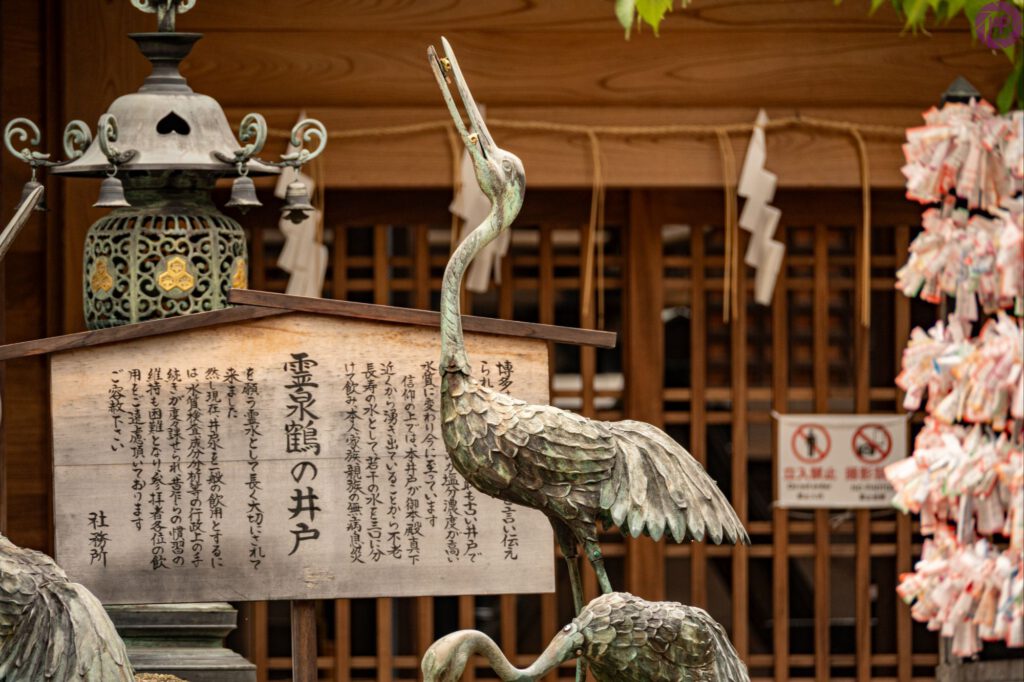 博多
られ
言い伝え
も古い井戸で
塩分濃度が高い
水質に変わり今に至っています
信仰の上では、本井戸が御本殿真下
近くから湧き出ていることから不老
長寿の水として若干の水を三口に分
け飲み本人、家族、親族の無病息災
霊泉鶴の井戸
を願う霊水として長く大切にされて
来ました
然し現在、井泉を一般の飲用とするに
は、水質検査成分分析等の行政上の手
続きが度々課せられ昔からの慣習の
維持も困難となり参拝者各位の飲
用をご遠慮頂いております
ご容赦下さい
社務所
立入禁止
撮影禁止